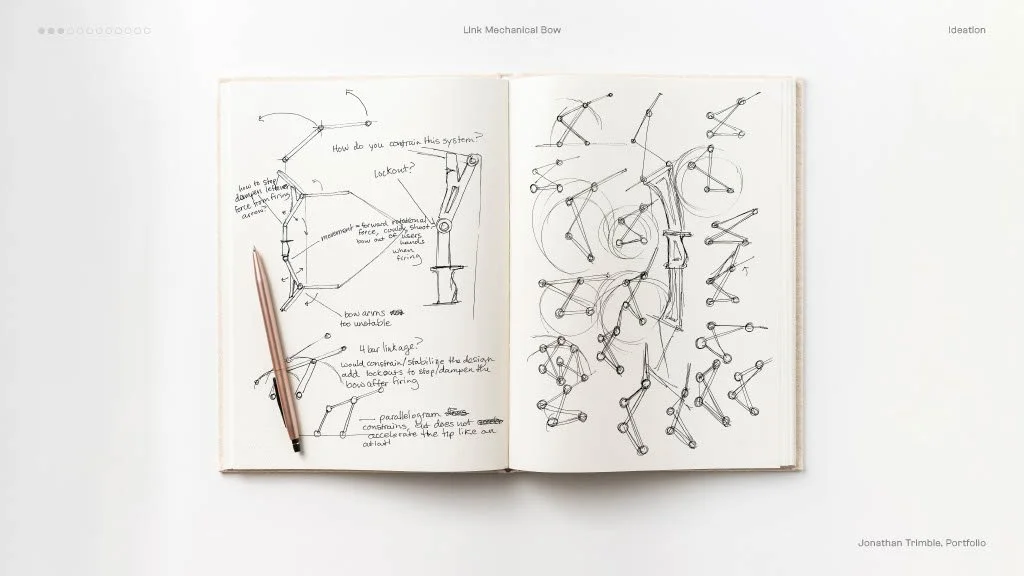 Link Mechanical Bow
Ideation
How do you constrain this system?
lockout?
how to stop/
dampen leftover
force from firing
arrow?
movement = forward rotational
force, could shoot
bow out of users
hands
when
firing
bow arms
too unstable
4 bar linkage?
would constrain/stabilize the design
add lockouts to stop/dampen the
bow after firing
parallelogram
constrains, but does not
accelerate the tip like an
atlatl
Jonathan Trimble, Portfolio